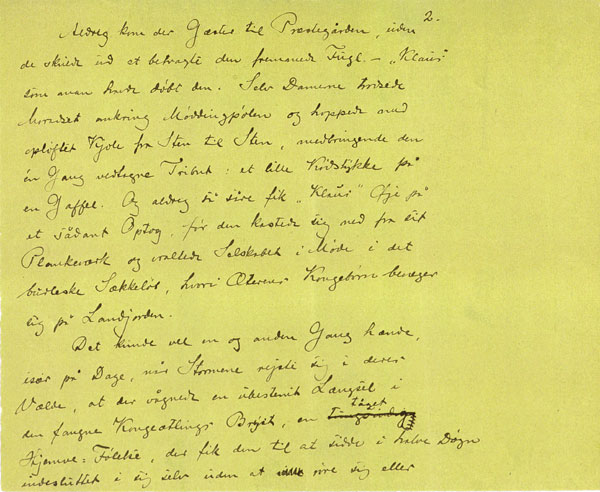 2.
Aldrig kom der Gæster til Præstegården, uden
de skulde ud at betragte den fremmede Fugl. – „Klaus“
som man havde døbt den. Selv Damerne trodsede
Moradset omkring Møddingpølen og hoppede med
opløftet Kjole fra Sten til Sten, medbringende den
én Gang vedtagne Tribut: et lille Kødstykke på
en Gaffel. Og aldrig så såre fik „Klaus“ Øje på
et sådant Optog, før den kastede sig ned fra sit
Plankeværk og vraltede Selskabet i Møde i det
burleske Sækkeløb, hvori Æterens Kongebørn bevæger
sig på Landjorden.
Det kunde vel en og anden Gang hænde,
især på Dage, når Stormene rejste sig i deres
Vælde, at der vågnede en ubestemt Længsel i
den fangne Kongeætlings Bryst, en tåget
Hjemve-Følelse, der fik den til at sidde i halve Døgn
indesluttet i sig selv uden at røre sig eller